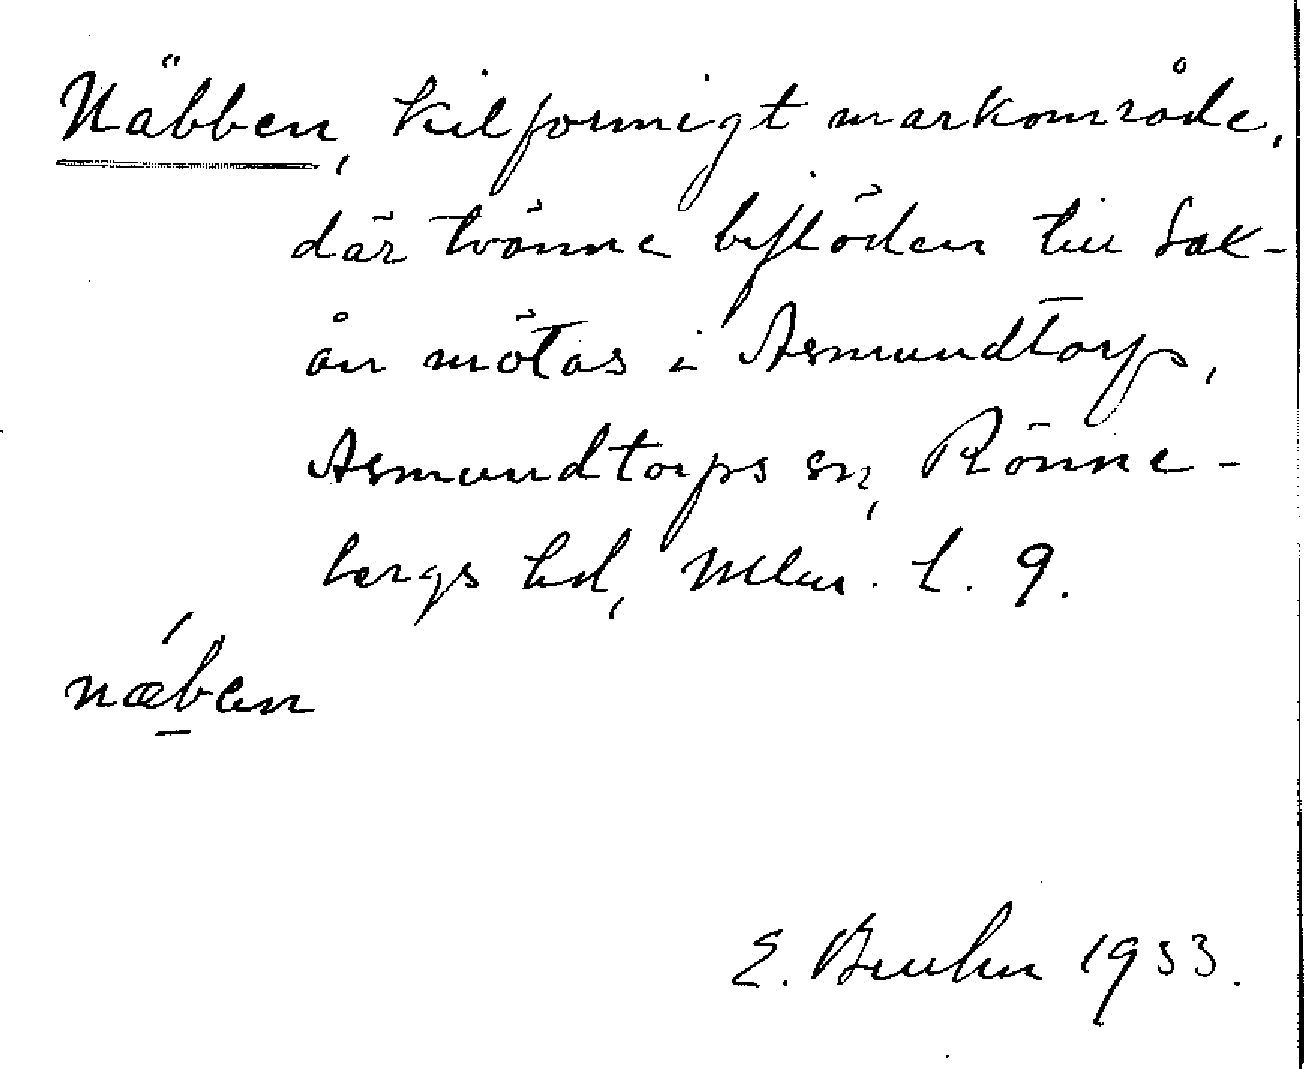 Näbben, kilformigt markområde,
där tvänne biflöden till Sax-
ån mötas i Asmundtorp,
Asmundtorps sn, Rönne-
bergs hd, Mlm. l. 9.
næben
E. Bruhn 1933.